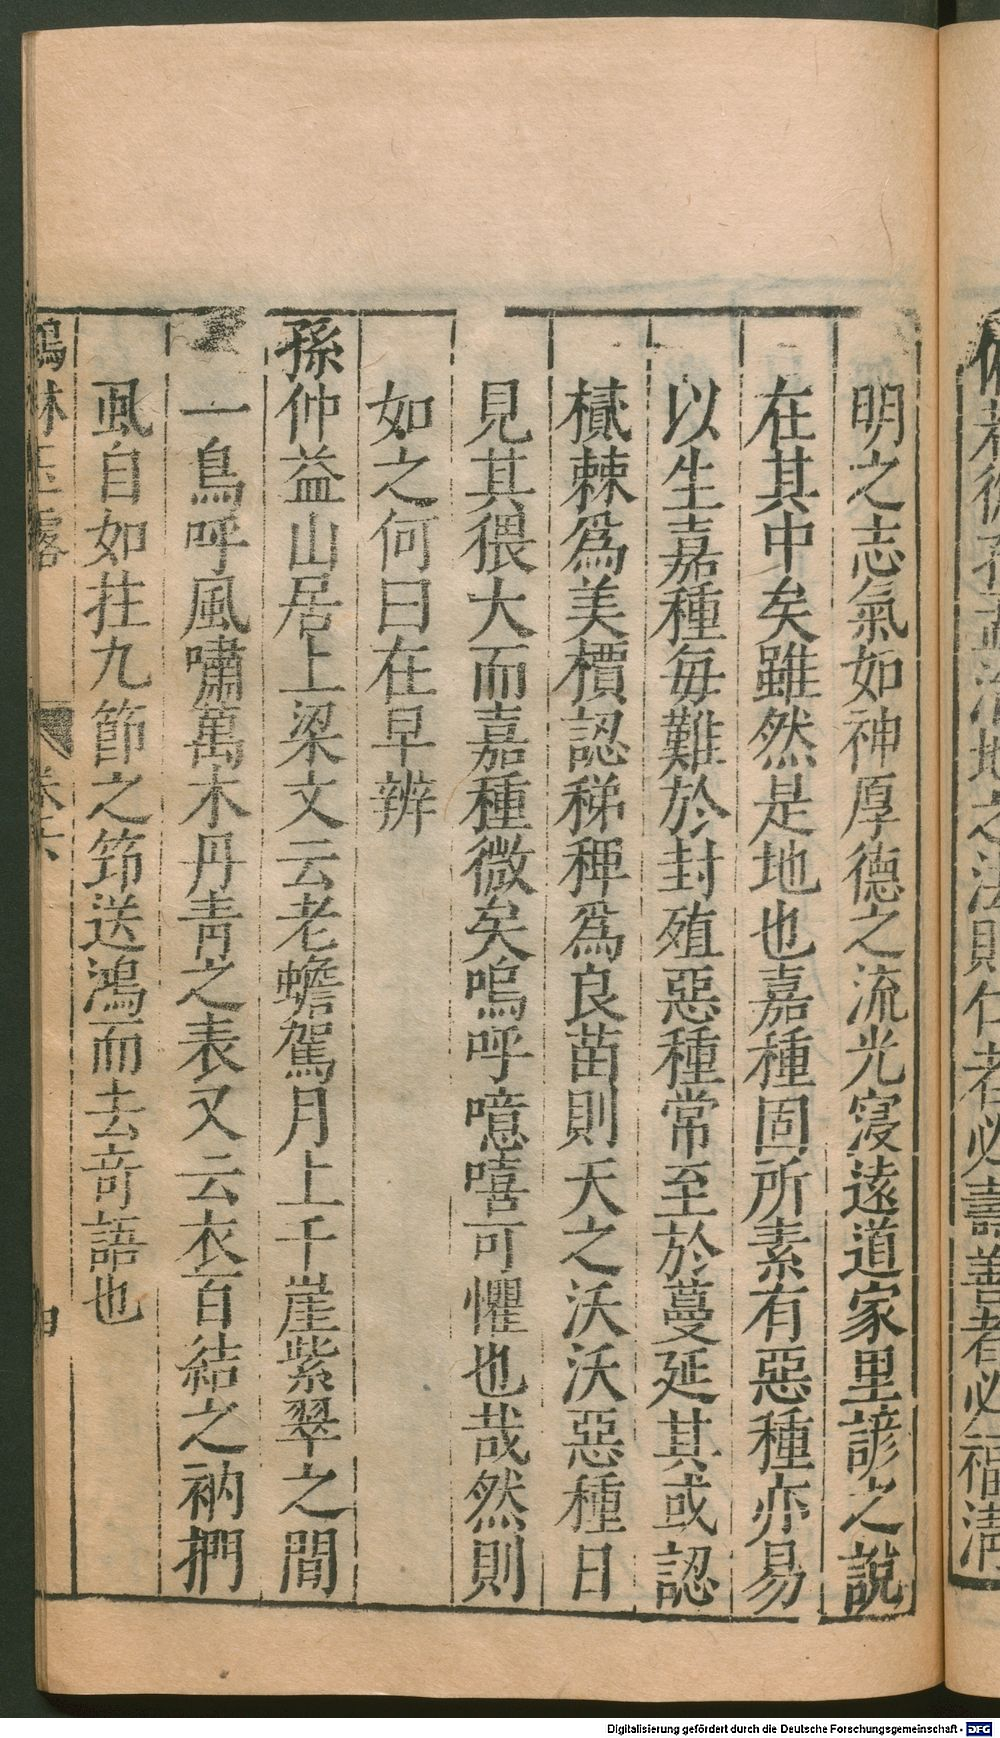 明之志氣如神厚德之流光寖遠道家里諺之說
在其中矣雖然是地也嘉種固所素有惡種亦易
以生嘉種每難於封殖惡種常至於蔓延其或認
樲棘爲美檟認稊稗爲良苗則天之沃沃惡種日
見其猥大而嘉種微矣嗚呼噫嘻可懼也哉然則
如之何曰在早辨
孫仲益山居上梁文云老蟾駕月上千崖紫翠之間
一鳥呼風嘯萬木丹靑之表又云衣百結之衲捫
虱自如拄九節之筇送鴻而去奇語也
林玉露
卷六
者必壽善者必福
Digitalisierung gefördert durch die Deutsche Forschungsgemeinschaft - DFG